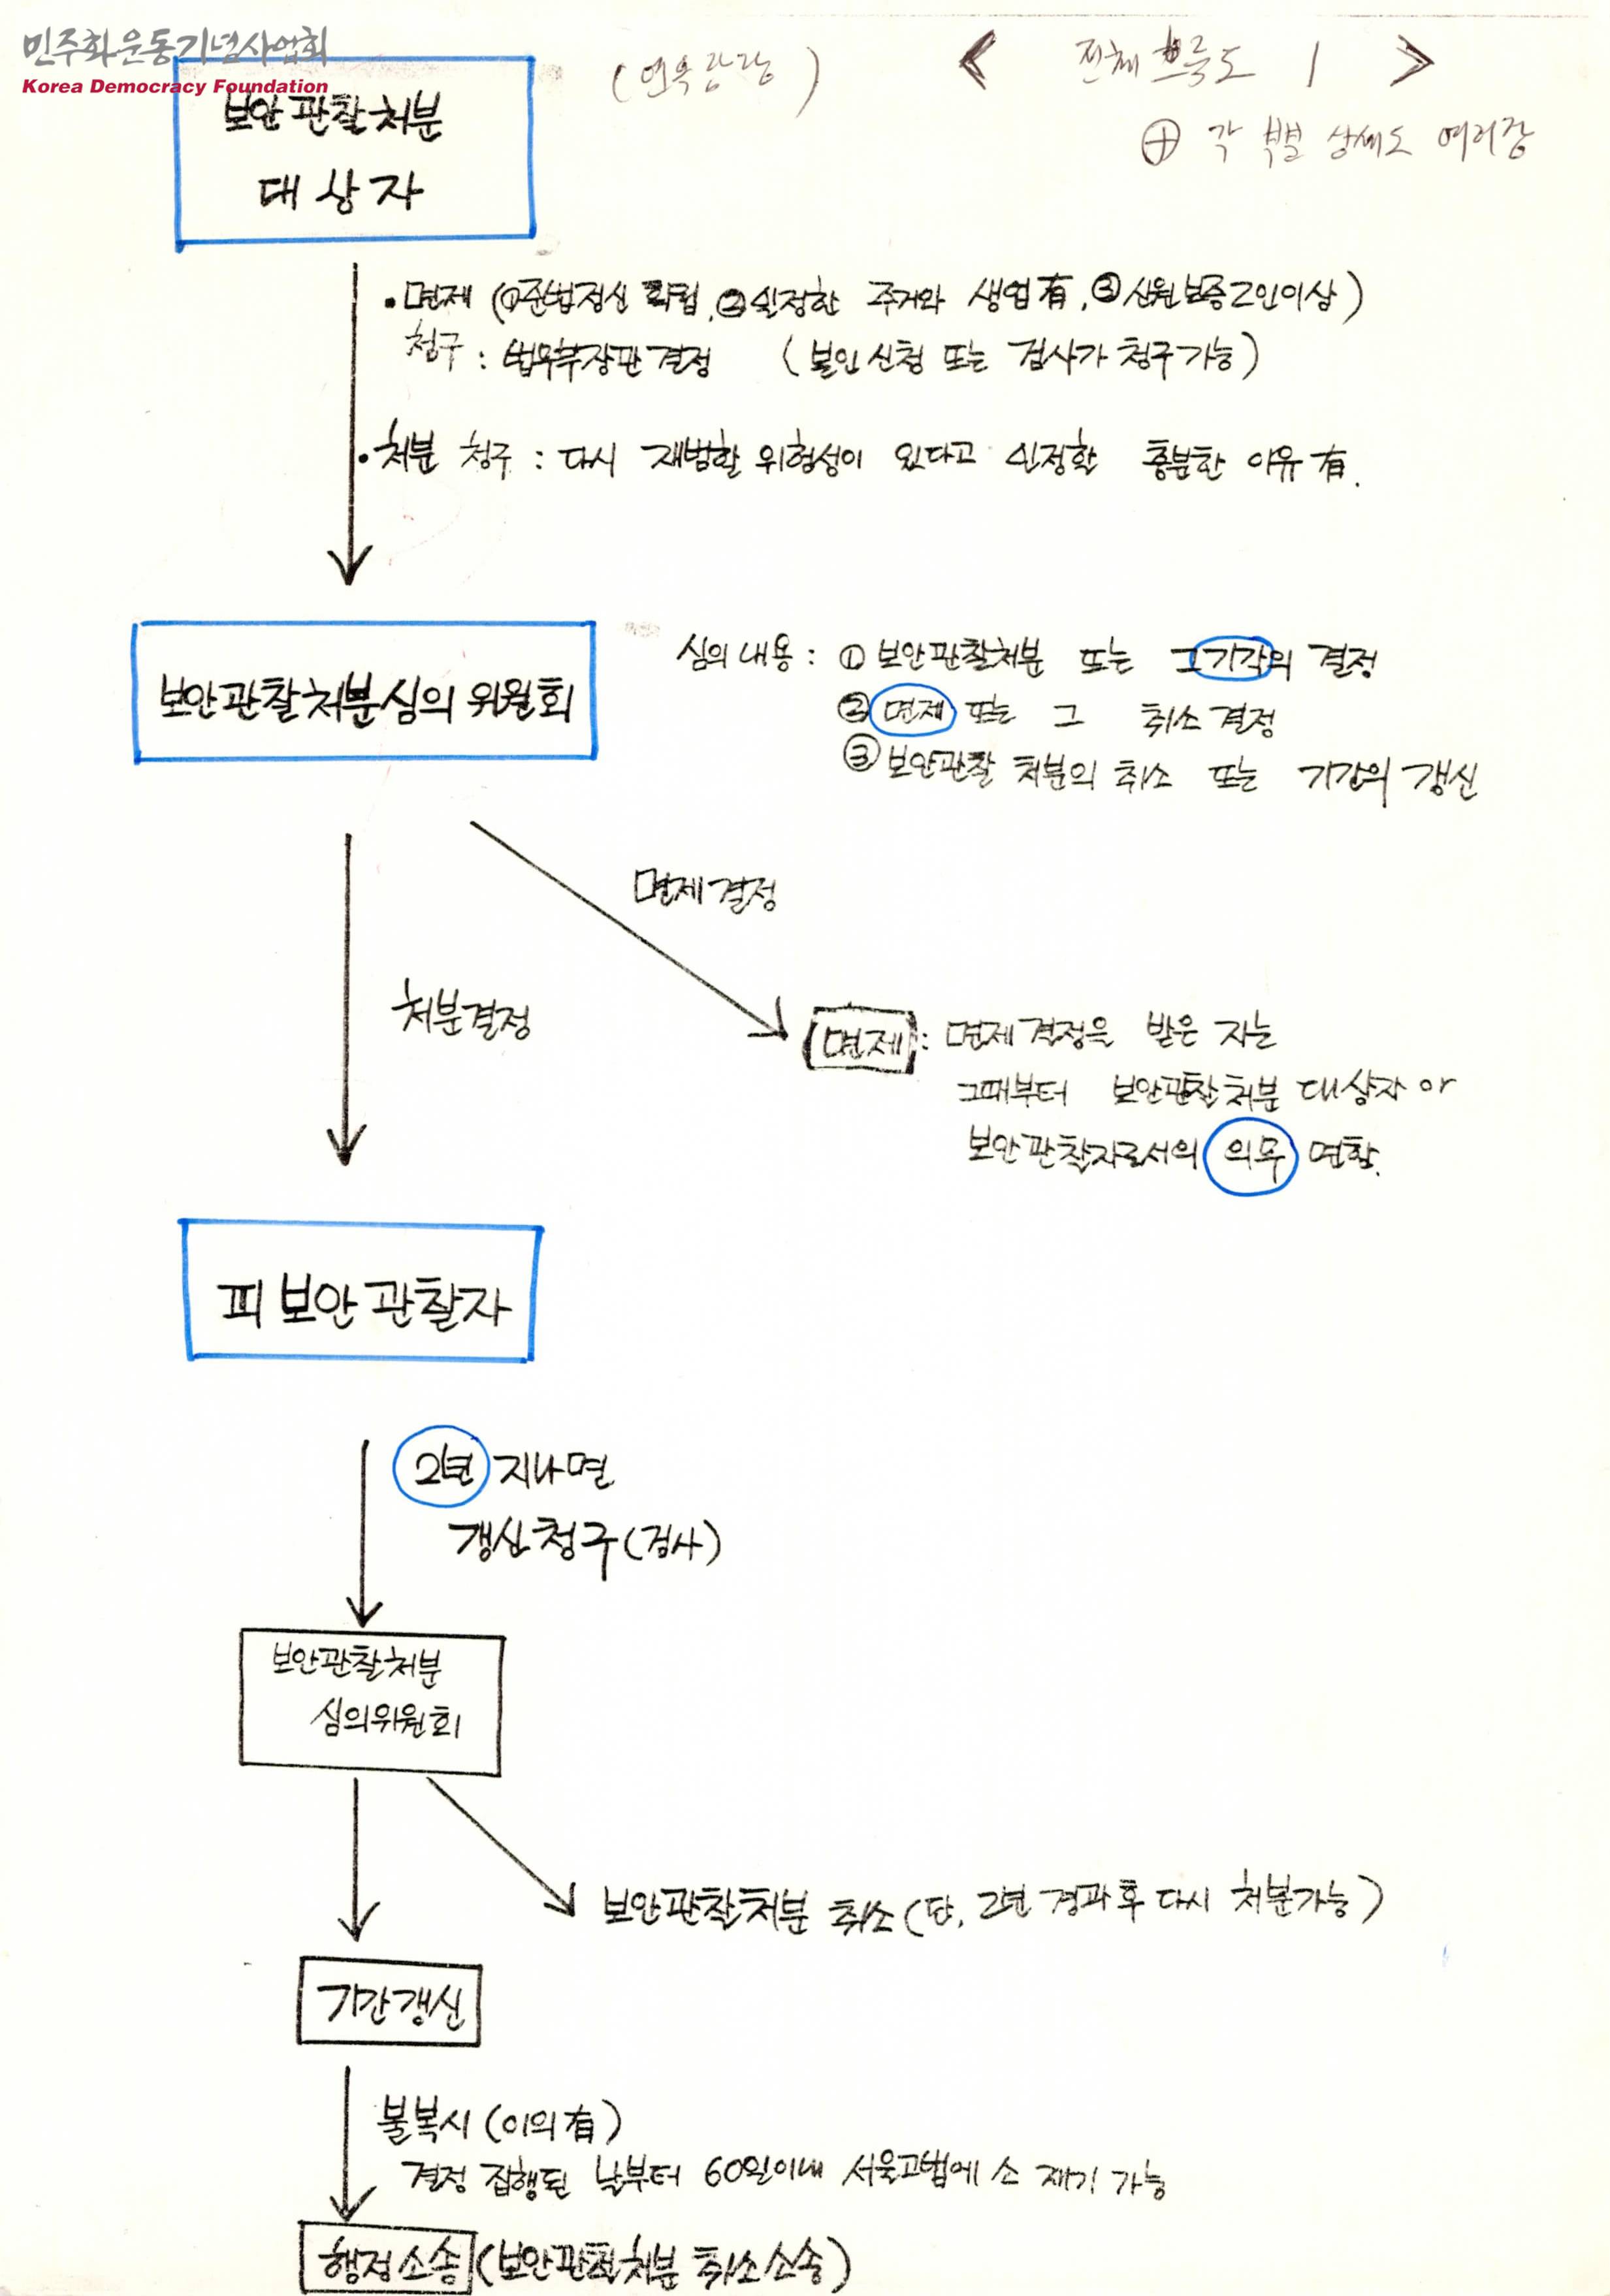 민주화운동기념사업회
Korea Democracy Foundation
< 전체 흐름도 1 >
⊕ 각 부별 상세도 여러장
보안관찰처분
대상자
• 면제 (①준법정신 확립, ②일정한 주거와 생업有, ③신원보증2인이상)
청구 : 법무부장관결정 (본인신청 또는 검사가 청구가능)
• 처분 청구 : 다시 재범할 위험성이 있다고 인정할 충분한 이유 有.
보안관찰처분심의위원회
심의내용 : ① 보안관찰처분 또는 그기각의 결정
② 면제 또는 그 취소결정
③ 보안관찰 처분의 취소 또는 기간의 갱신
면제결정
처분결정
면제 : 면제결정을 받은 자는
그때부터 보안관찰처분대상자 or
보안관찰자로서의 의무 면함.
피보안관찰자
2년 지나면
갱신청구(검사)
보안관찰처분
심의위원회
보안관찰처분 취소(단, 2년 경과후 다시 처분가능)
기간갱신
불복시 (이의有)
결정 집행된 날부터 60일이내 서울고법에 소 제기 가능
행정소송 (보안관찰처분 취소소송)